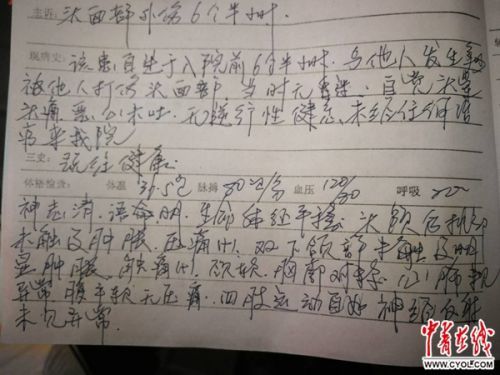 主诉: 头面部外伤6个半小时.
现病史: 该患自述于入院前6个半小时, 与他人发生争
被他人打伤头面部, 当时无昏迷, 自觉头晕
头痛, 恶心未吐, 无逆行性健忘, 未经任何治
而来我院
三史: 既往健康.
体格检查: 体温 36.5℃ 脉搏 80次/分 血压 120/80 呼吸 20
神志清, 语言明, 生命体征平稳, 头颅
未触及肿胀, 压痛(+), 双下颌部未触及明
显肿胀, 压痛(+), 颈软, 胸廓对称, 心肺无
异常 腹平软无压痛, 四肢运动自如 神经反射
未见异常.
中青在线
WWW.CYOL.COM